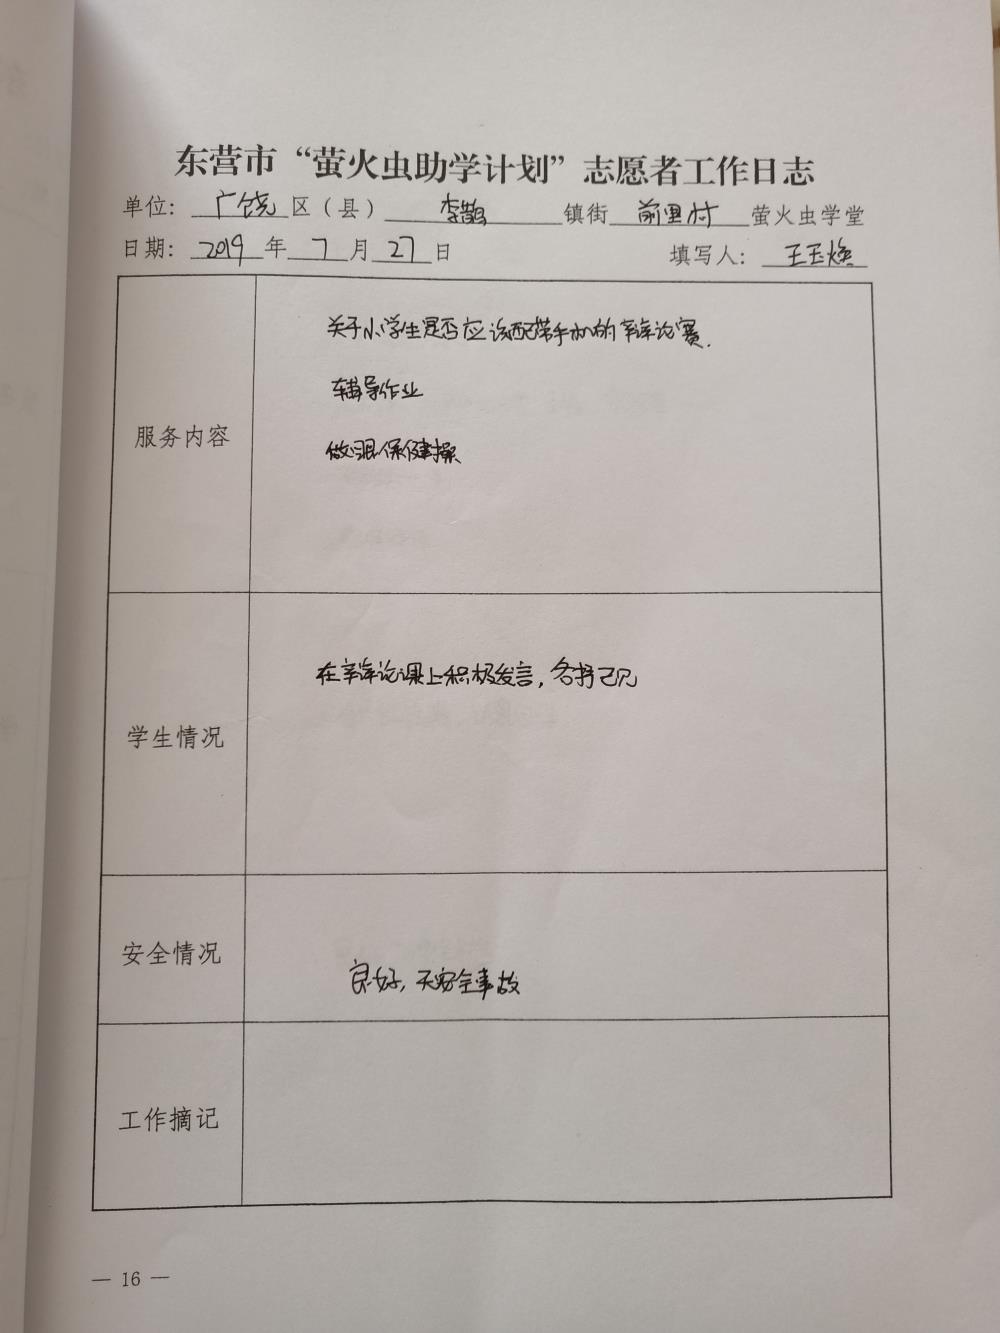 东营市“萤火虫助学计划”志愿者工作日志
单位：广饶区（县）李鹊镇街前里村萤火虫学堂
日期：2019年7月27日 填写人：王玉焕
关于小学生是否应该配带手机的辩论赛.
辅导作业
服务内容
做眼保健操
在辩论课上积极发言，各持己见
学生情况
安全情况
良好，无安全事故
工作摘记
— 16 —